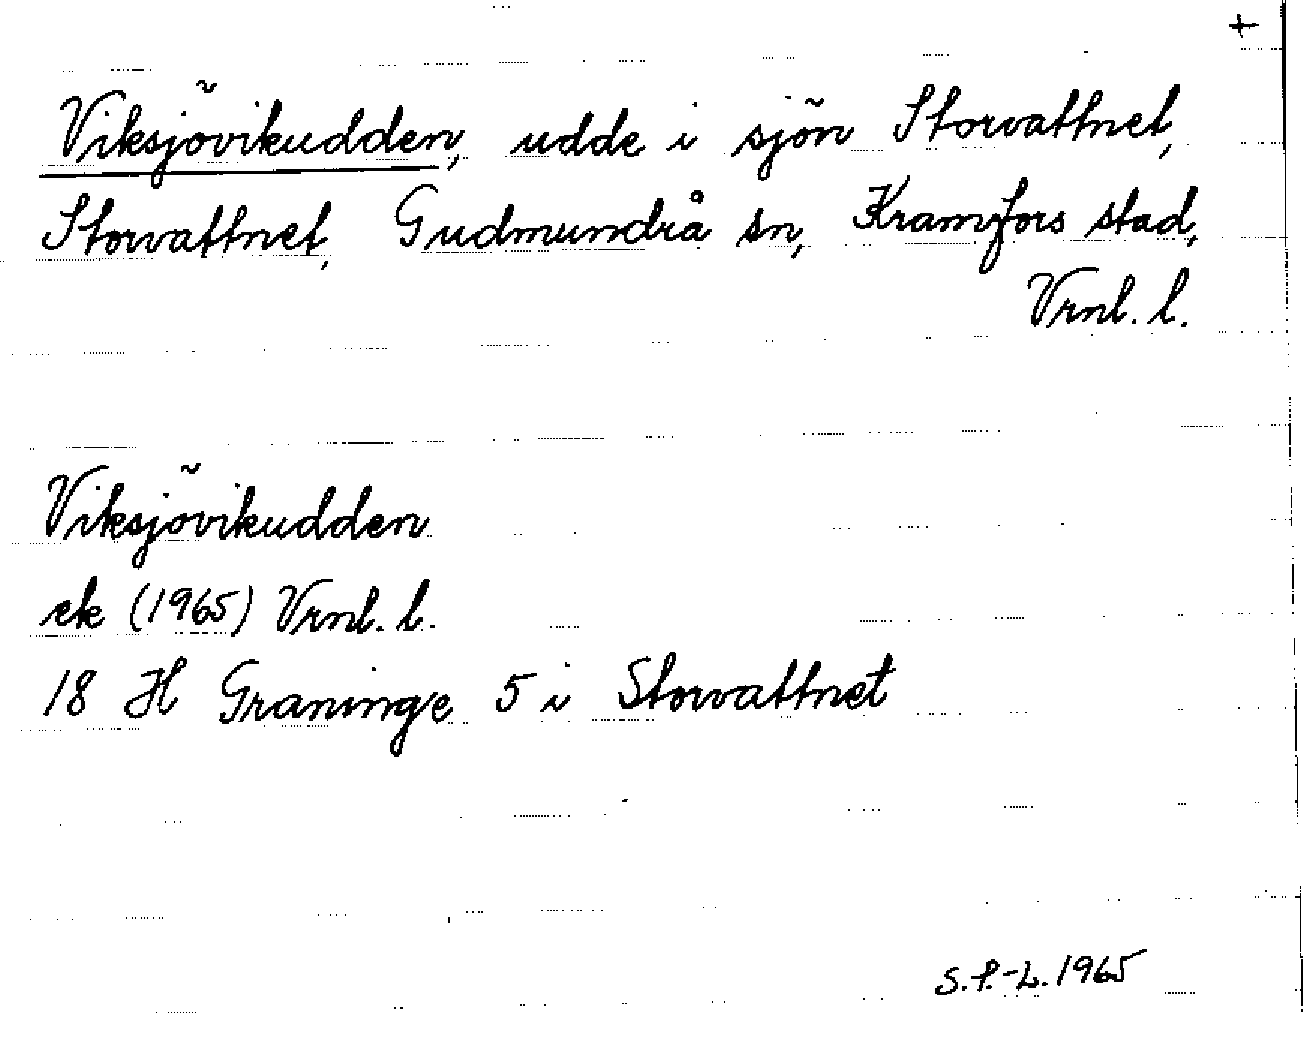 +
Viksjövikudden, udde i sjön Storvattnet,
Storvattnet, Gudmundrå sn, Kramfors stad,
Vrnl. l.
Viksjövikudden
ek (1965) Vrnl. l.
18 H Graninge 5 i Storvattnet
S.P.-L. 1965